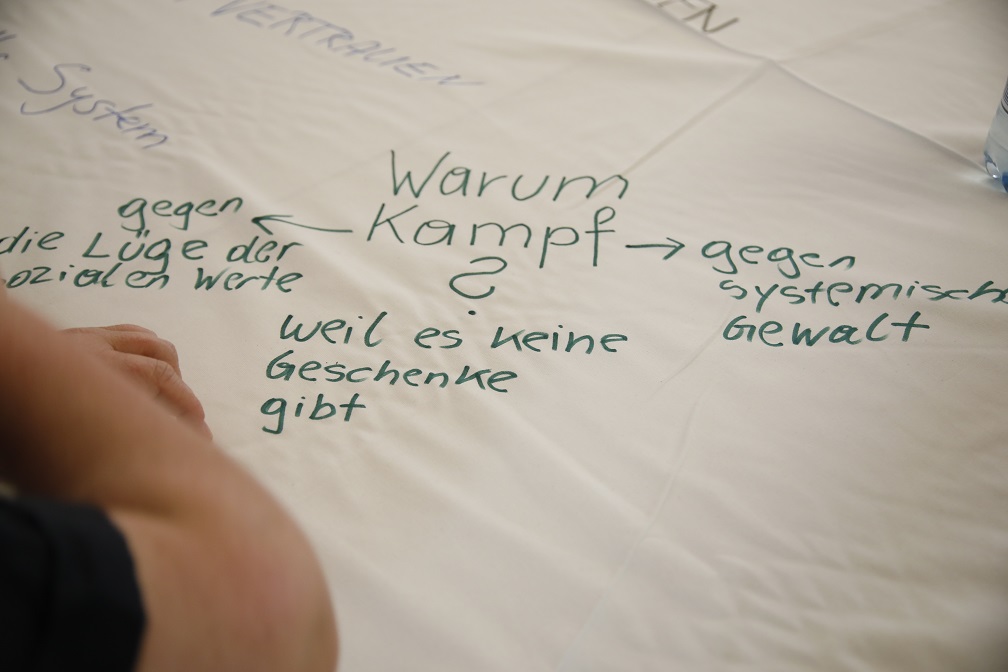 VERTRAUEN
System
Warum
Kampf
?
gegen
die Lüge der
ozialen Werte
gegen
systemisch
Gewalt
weil es keine
Geschenke
gibt